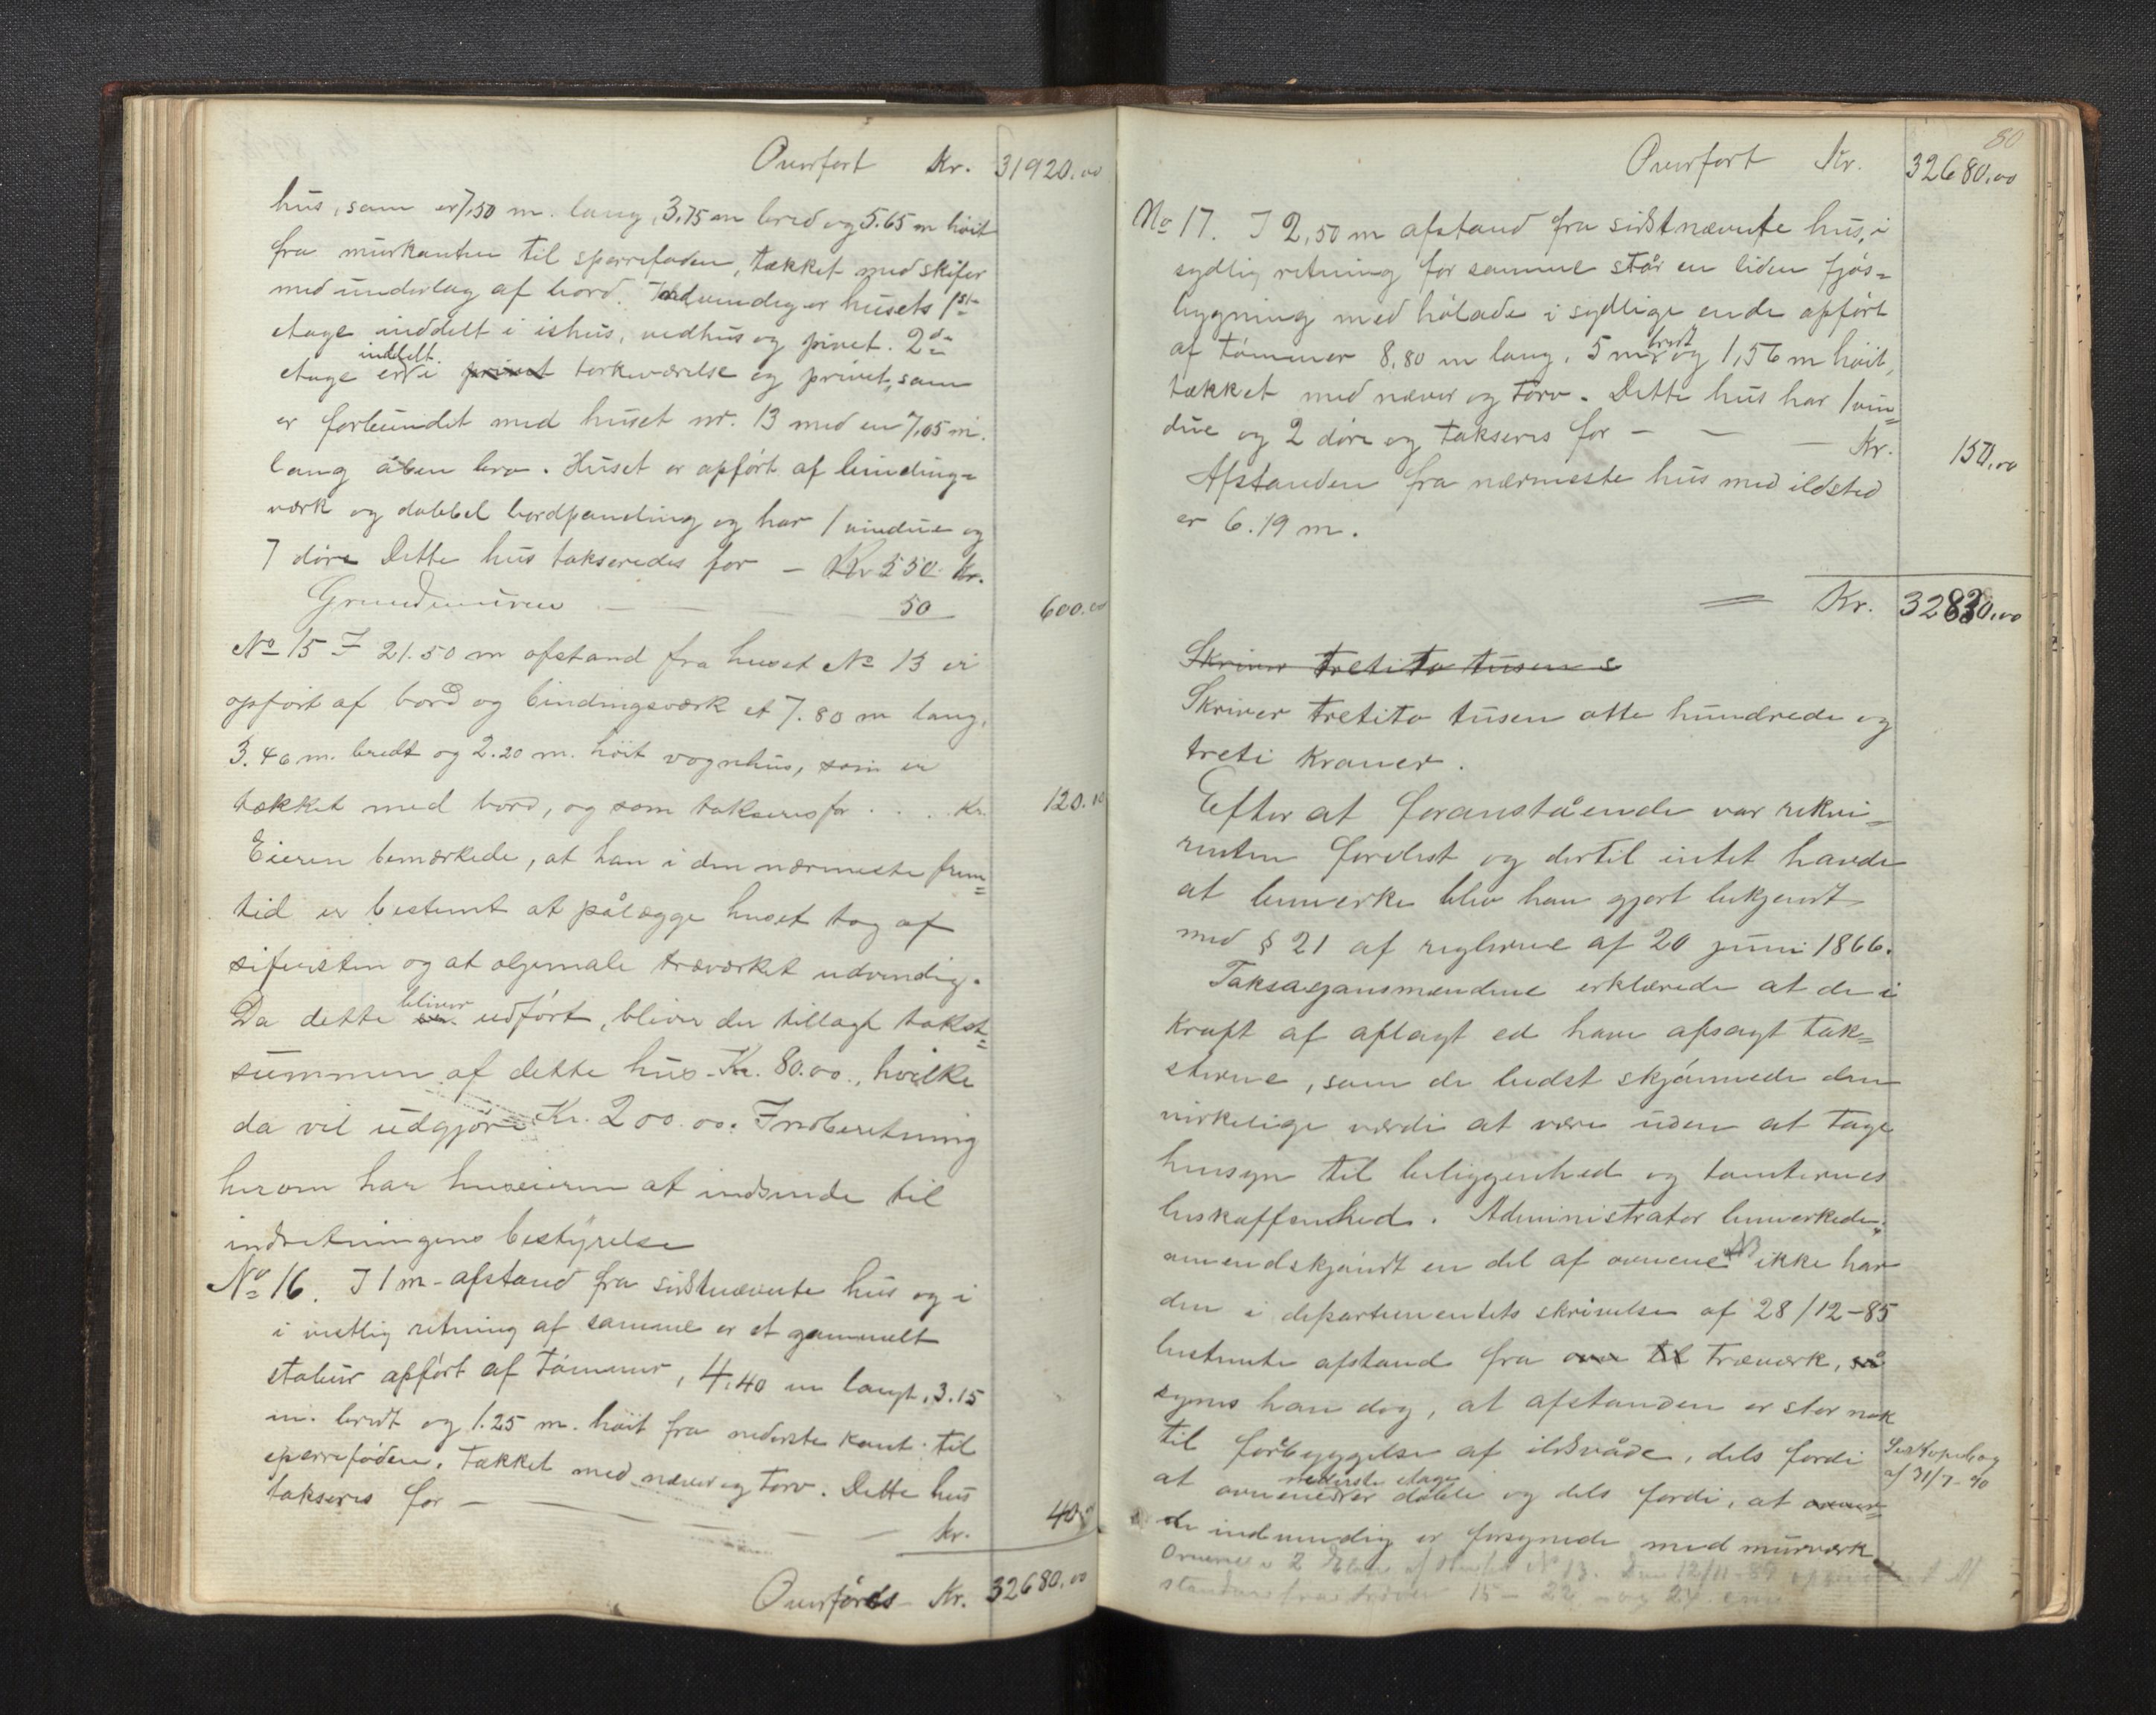 Overført Kr. 31920.00
hus, som er 7,50 m. lang, 3,75 m bred og 5.65 m høit
fra murkanten til sperrefoden, tækket med skifer
med underlag af bord. Indvendig er husets 1ste
etage inddelt i ishus, vedhus og privet. 2den
etage er inddelt i privet torkeværelse og privet, som
er forbundet med huset nr. 13 med en 7,05 m.
lang åben bro. Huset er opført af binding-
værk og dobbel bordpaneling og har 1 vindue og
7 døre Dette hus takseredes for – Kr 550 Kr.
Grundmuren – – – 50 600.00
No 15 I 21.50 m afstand fra huset No 13 er
opført af bord og bindingsværk et 7.80 m lang,
3.40 m. bredt og 2.20 m. høit vognhus, som er
tækket med bord, og som takseres for . . . Kr. 120.00
Eieren bemærkede, at han i den nærmeste frem=
tid er bestemt at pålægge huset tag af
sifersten og at oljemale træværket udvendig.
Da dette er bliver udført, bliver der tillagt takst=
summen af dette hus Kr. 80.00., hvilke
da vil udgjøre Kr. 200.00. Indberetning
herom har huseieren at indsende til
indretningens bestyrelse
No 16. I 1 m afstand fra sidstnævnte hus og i
i vestlig retning af samme er et gammelt
stabur opført af tømmer, 4,40 m langt, 3.15
m. bredt og 1.25 m. høit fra nederste kant til
sperrefoden. Tækket med næver og torv. Dette hus
takseres for – – – – – Kr. 40.00
Overføres Kr. 32680.00
80
Overført Kr. 32680.00
No 17. I 2,50 m afstand fra sidstnævnte hus, i
sydlig retning for samme står en liden fjøs=
bygning med hølade i sydlige ende opført
af tømmer 8,80 m lang, 5 m bredt og 1,56 m høit,
tækket med næver og torv. Dette hus har 1 vin=
due og 2 døre og takseres for – – – Kr. 150.00
Afstanden fra nærmeste hus med ildsted
er 6.19 m.
= Kr. 32830.00
Skriver tretito tusen
Skriver tretito tusen otte hundrede og
treti kroner.
Efter at foranstående var rekvi=
renten forelæst og dertil intet havde
at bemerke blev han gjort bekjendt
med § 21 af reglerne af 20 juni 1866.
Taksasjonsmændene erklærede at de i
kraft af aflagt ed have afsagt tak=
sterne, som de bedst skjønnede den
virkelige værdi at være uden at tage
hensyn til beliggenhed og tomternes
beskaffenhed. Administrator bemerkede:
omendskjøndt en del af ovnene NB ikke har
den i departementets skrivelse af 28/12–85
bestemte afstand fra ovn til træværk, så
synes han dog, at afstanden er stor nok
til forebyggelse af ildsvåde, dels fordi
at ovnene nederste etage er doble og dels fordi, at ovner=
de indvendig er forsynede med murværk
Se Kopibog
af 31/7–90
Ovnene i 2 Etage af Huset No 13. Den 12/11–89
standen fra træværk 15 – 22 og 24 cm